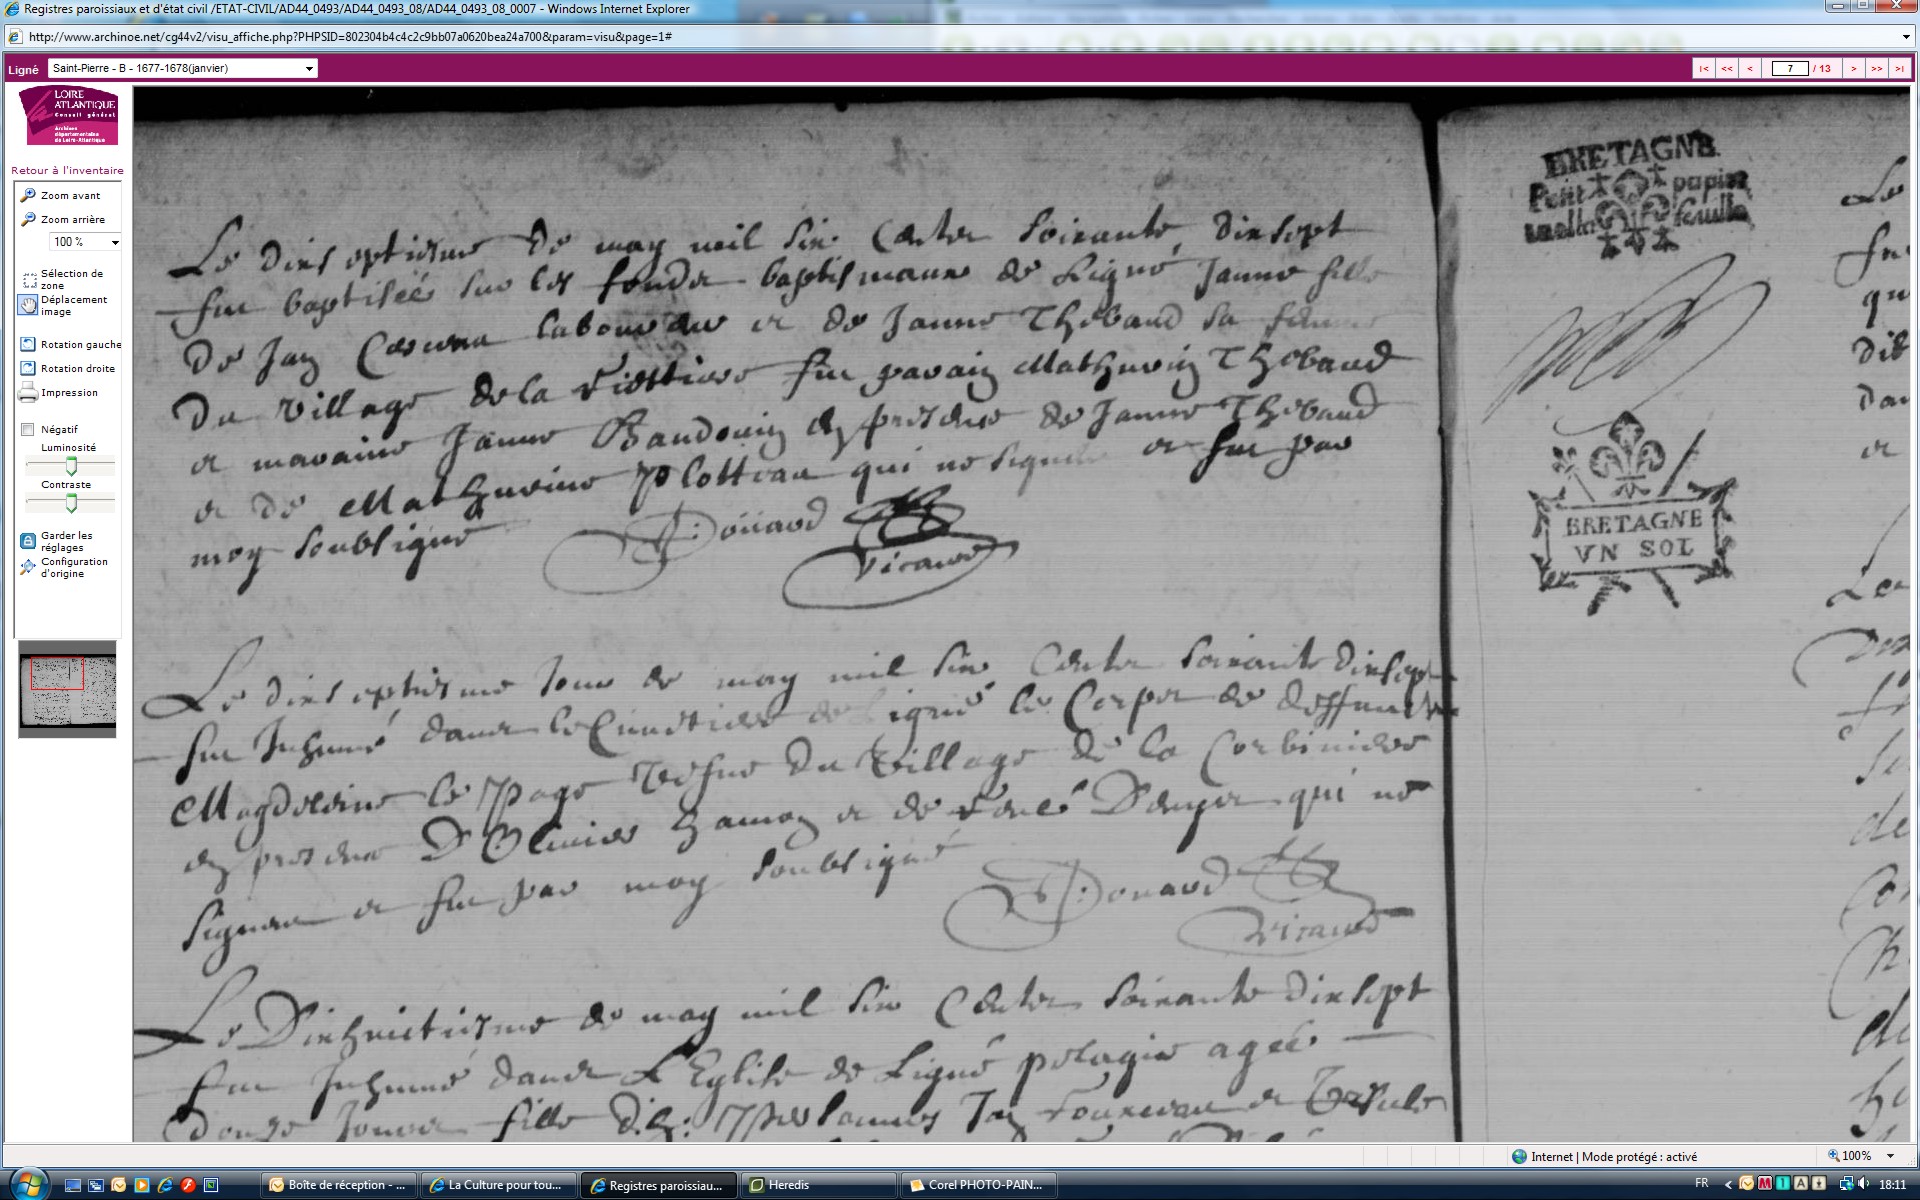 Registres paroissiaux et d'état civil /ETAT-CIVIL/AD44_0493/AD44_0493_08/AD44_0493_08_0007 - Windows Internet Explorer
http://www.archinoe.net/cg44v2/visu_affiche.php?PHPSID=802304b4c4c2c9bb07a0620bea24a700&param=visu&page=1#
Ligné Saint-Pierre - B - 1677-1678(janvier) |< << < 7 / 13 > >> >|
LOIRE
ATLANTIQUE
Conseil général
Archives
départementales
de Loire-Atlantique
Retour à l'inventaire
Zoom avant
Zoom arrière
100 %
Sélection de
zone
Déplacement
image
Rotation gauche
Rotation droite
Impression
Négatif
Luminosité
Contraste
Garder les
réglages
Configuration
d'origine
Le dixseptiesme de may mil six Centz soixante dixsept
fut baptisée sur les fondz baptismaux de Ligné Janne fille
de Jan laboureur et de Janne Thebaud sa femme
du village de la fut parain Mathurin Thebaud
et maraine Janne Baudouin en presence de Janne Thebaud
et de Mathurine Plotteau qui ne signent et fut par
moy soubsigné
P: Doüaud
Vicaire
Le dixseptiesme jour de may mil six Centz soixante dixsept
fut Inhumé dans le Cimetiere de Ligné le Corps de deffuncte
Magdeleine le Page vefue du village de la Corbiniere
en presence D'Olivier hamon et de René qui ne
signent et fut par moy soubsigné
P: Douaud
Vicaire
Le Dixhuictiesme de may mil six Centz soixante dixsept
fut Inhumé dans L'Eglise de Ligné pelagie agée
douze jours fille d.h: personnes Jan et Ursule
BRETAGNE
Petit papier
feuille
BRETAGNE
VN SOL
Internet | Mode protégé : activé 100%
Boîte de réception - ... La Culture pour tou... Registres paroissiau... Heredis Corel PHOTO-PAIN... FR 18:11